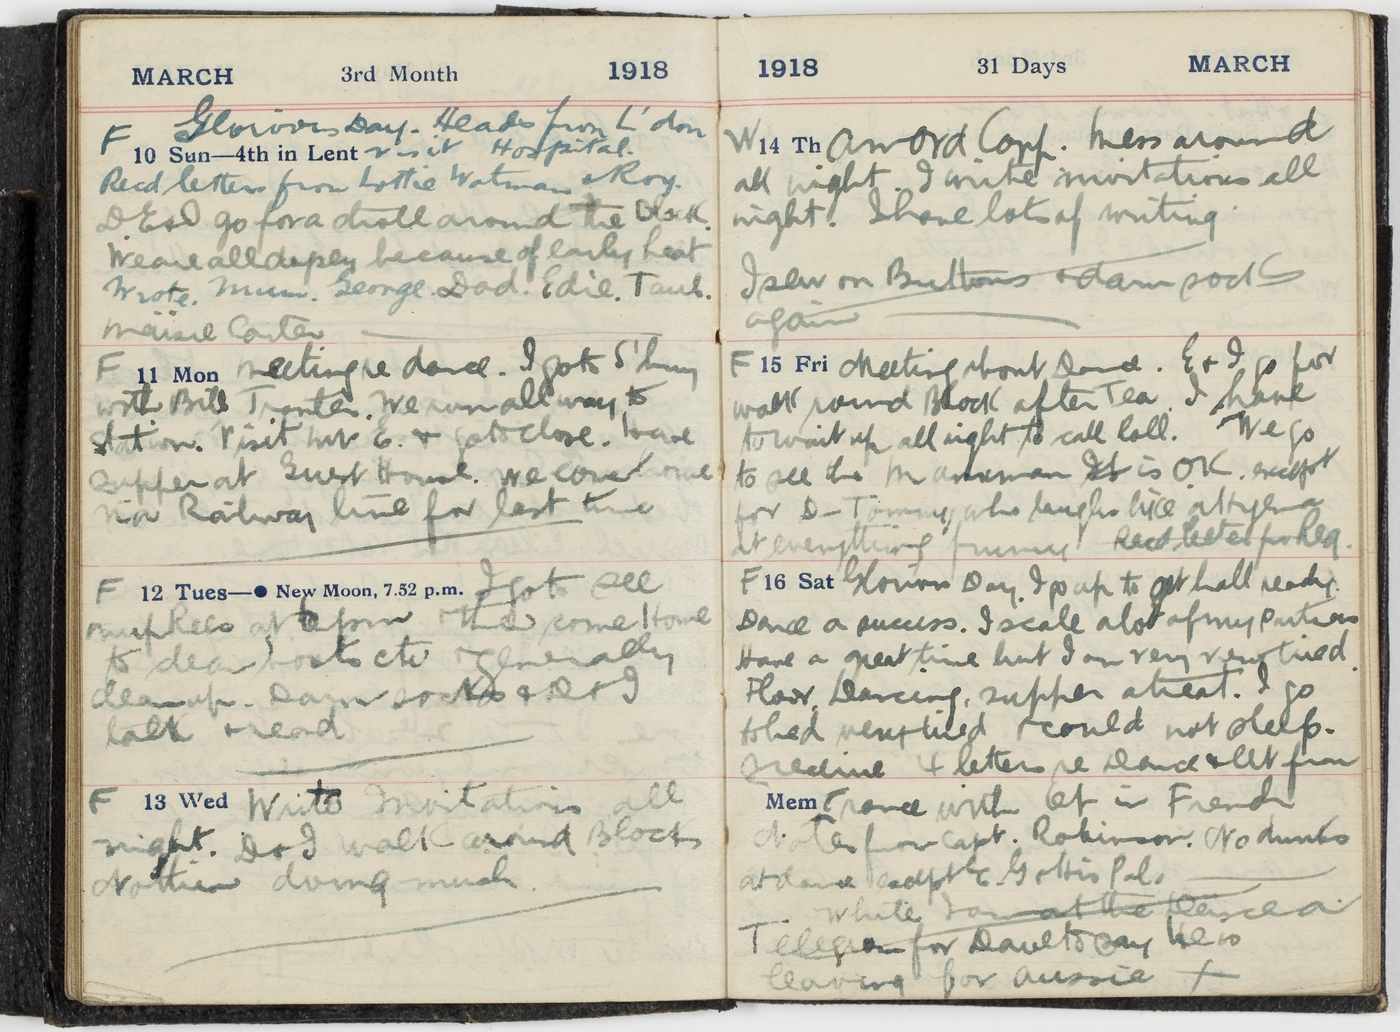 MARCH 3rd Month 1918
F Glorious Day. Heads from L'don
10 Sun—4th in Lent visit Hospital.
Recd letters from Lottie Watman & Roy.
D. E & I go for a stroll around the Block.
We are all dopey because of early heat
Wrote. Mum. George. Dad. Edie. Taub.
Maisie Carter
F 11 Mon Meeting re dance. I go to S'bury
with Bill Tranter. We run all way to
station. Visit E. & go to close. Have
supper at Guest House. We come home
via Railway line for last time
F 12 Tues—● New Moon, 7.52 p.m. I go to see
at & then come Home
to clean boots etc & generally
clean up. Darn socks & D & I
talk & read
F 13 Wed Write Invitations all
night. D & I walk around Block
Nothin doing much.
1918 31 Days MARCH
W 14 Th Am Ord Corp. Mess around
all night. I write invitations all
night. I have lots of writing.
I sew on Buttons & darn socks
again
F 15 Fri Meeting about Dance. E & I go for
walk round Block after Tea. I have
to wait up all night to call roll. We go
to see the Manxman It is OK. except
for D— Tommy who laughs like a Hyena
at everything funny. Recd letter from Reg.
F 16 Sat Glorious Day. I go up to get hall ready.
Dance a success. I scale a lot of my partners
Have a great time but I am very very tired.
Floor, Dancing, supper a treat. I go
to bed very tired & could not sleep.
Receive 4 letters re Dance & let from
Mem France with in French
Notes from Capt. Robinson. No drunks
at dance except E. G & His Pal.
While I am at the Dance a
Telegram for Dave to say He is
leaving for Aussie